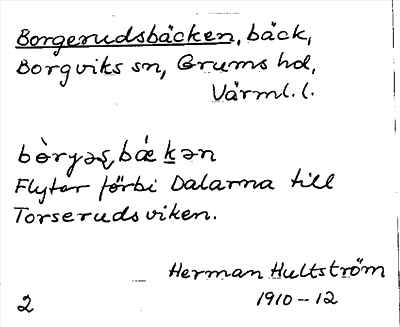 Borgerudsbäcken, bäck,
Borgviks sn, Grums hd,
Värml. l.
bòryəs̨bǽkən
Flyter förbi Dalarna till
Torserudsviken.
Herman Hultström
1910-12
2